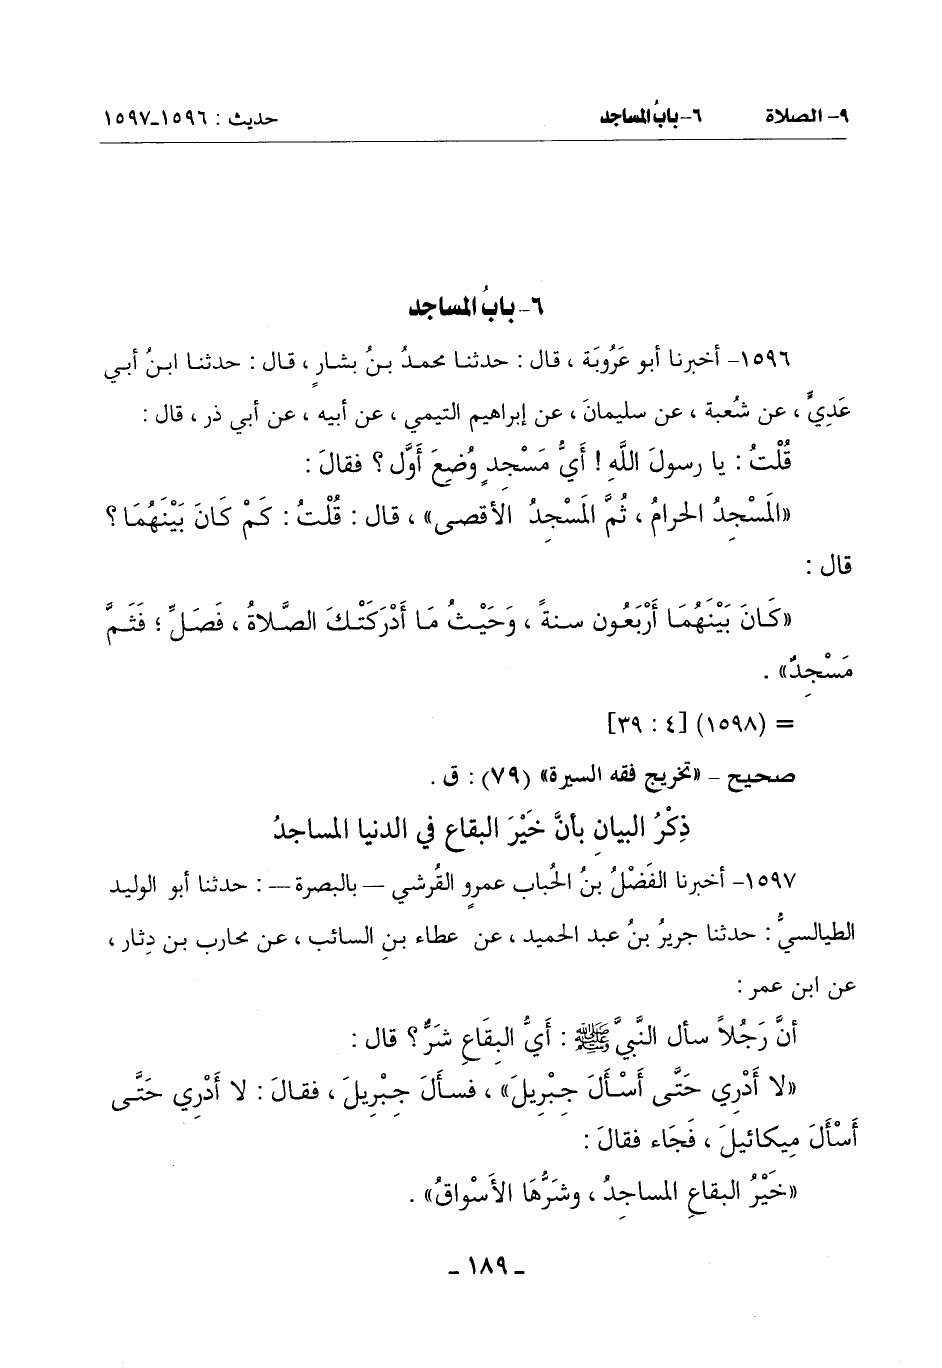 ٩- الصلاة ٦- بابُ المساجد حديث : ١٥٩٦-١٥٩٧
٦- بابُ المساجد
١٥٩٦- أخبرنا أبو عَرُوبَة ، قال : حدثنا محمدُ بنُ بشارٍ ، قال : حدثنا ابنُ أبي
عَدِيٍّ ، عن شُعبة ، عن سليمانَ ، عن إبراهيم التيمي ، عن أبيه ، عن أبي ذر ، قال :
قُلْتُ : يا رسولَ اللَّهِ ! أيُّ مَسْجِدٍ وُضِعَ أوَّل ؟ فقالَ :
«المَسْجِدُ الحرامُ ، ثُمَّ المَسْجِدُ الأقصى» ، قال : قُلْتُ : كَمْ كَانَ بَيْنَهُمَا ؟
قال :
«كَانَ بَيْنَهُمَا أرْبَعُون سنةً ، وَحَيْثُ مَا أدْرَكَتْكَ الصَّلاةُ ، فَصَلِّ ؛ فَثَمَّ
مَسْجِدٌ» .
= (١٥٩٨) [٤ : ٣٩]
صحيح - «تخريج فقه السيرة» (٧٩) : ق .
ذِكْرُ البيانِ بأنَّ خَيْرَ البقاع في الدنيا المساجدُ
١٥٩٧- أخبرنا الفَضْلُ بنُ الحُباب عمرٍو القُرشي – بالبصرة – : حدثنا أبو الوليد
الطيالسيُّ : حدثنا جريرُ بنُ عبد الحميد ، عن عطاء بنِ السائب ، عن محارب بن دِثار ،
عن ابن عمر :
أنَّ رَجُلاً سأل النَّبيَّ ﷺ : أيُّ البِقَاعِ شَرٌّ ؟ قال :
«لا أدْرِي حَتَّى أسْألَ جِبْرِيلَ» ، فسألَ جِبْرِيلَ ، فقالَ : لا أدْرِي حَتَّى
أسْألَ مِيكائيلَ ، فَجَاء فقالَ :
«خَيْرُ البقاعِ المساجِدُ ، وشَرُّهَا الأسْواقُ» .
- ١٨٩ -